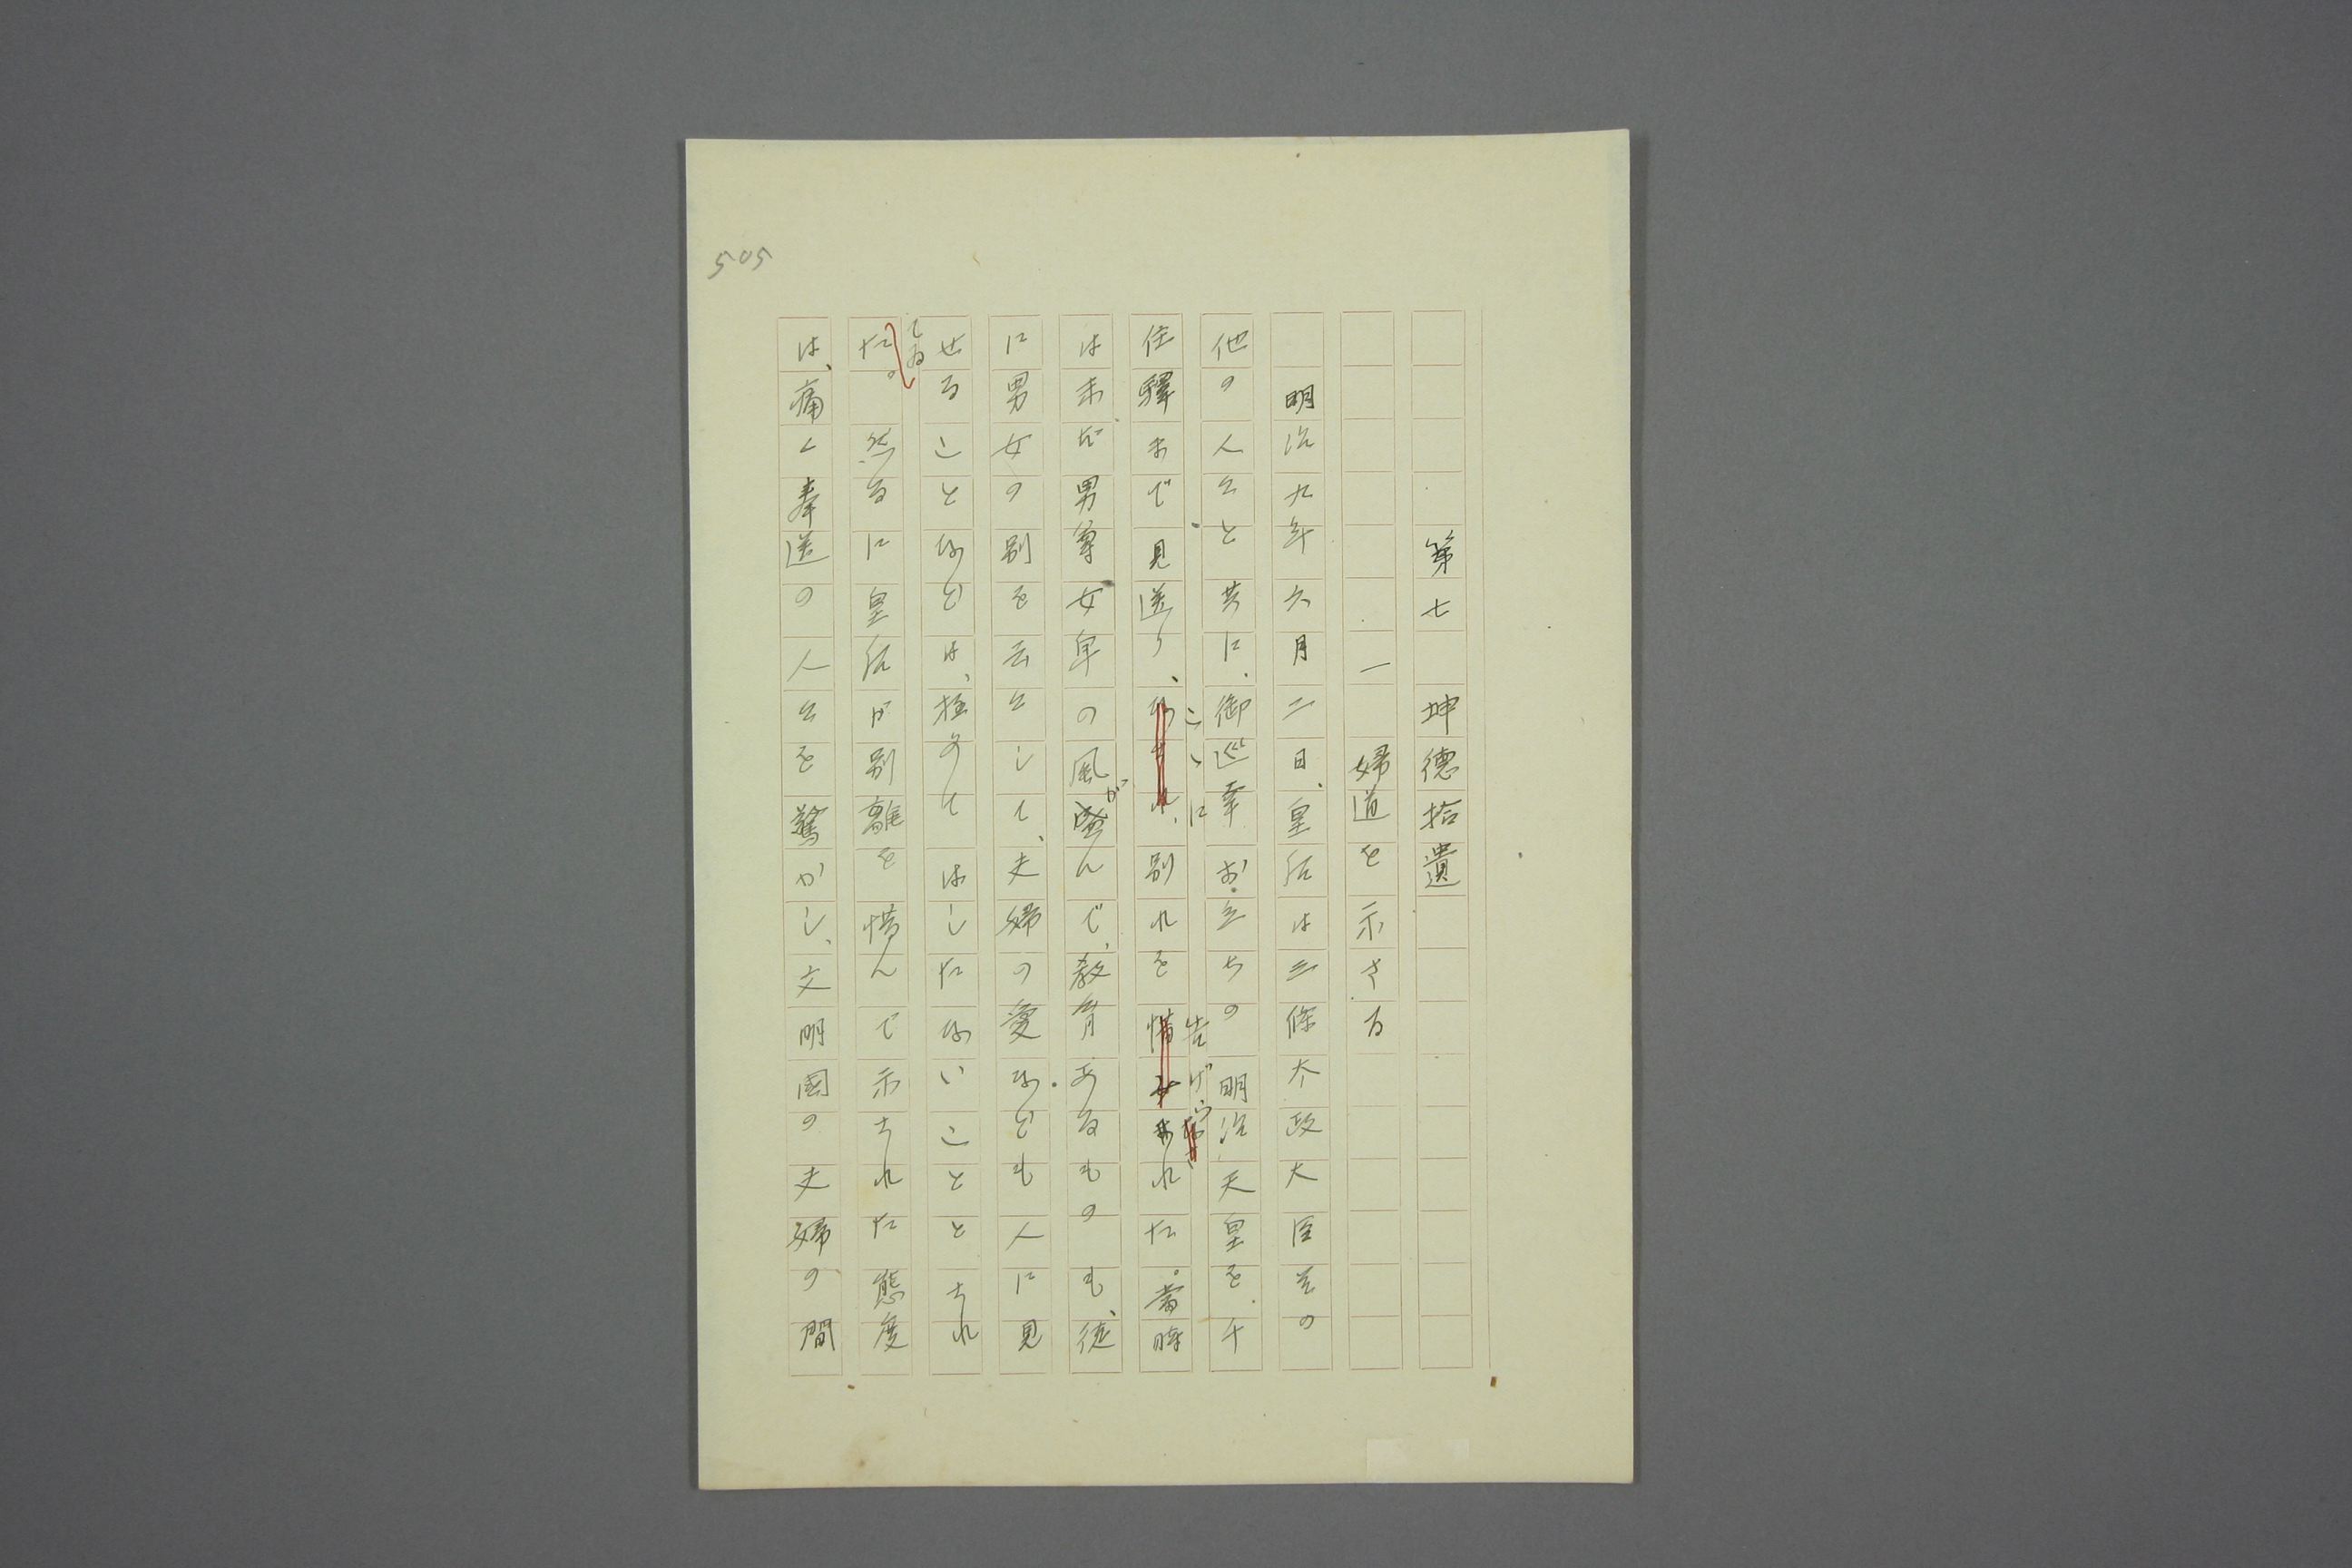 505
第七　坤德拾遺
一　婦道を示さる
明治九年六月二日、皇后は三條太政大臣その
他の人々と共に、御巡幸お立ちの明治天皇を、千
住驛まで見送り、こゝに別れを告げられた。當時
は未だ男尊女卑の風が盛んで、教育あるものも、徒
に男女の別を云々して、夫婦の愛なども人に見
せることなどは、極めてはしたないこととされ
てゐた。然るに皇后が別離を惜んで示された態度
は、痛く奉送の人々を驚かし、文明國の夫婦の間